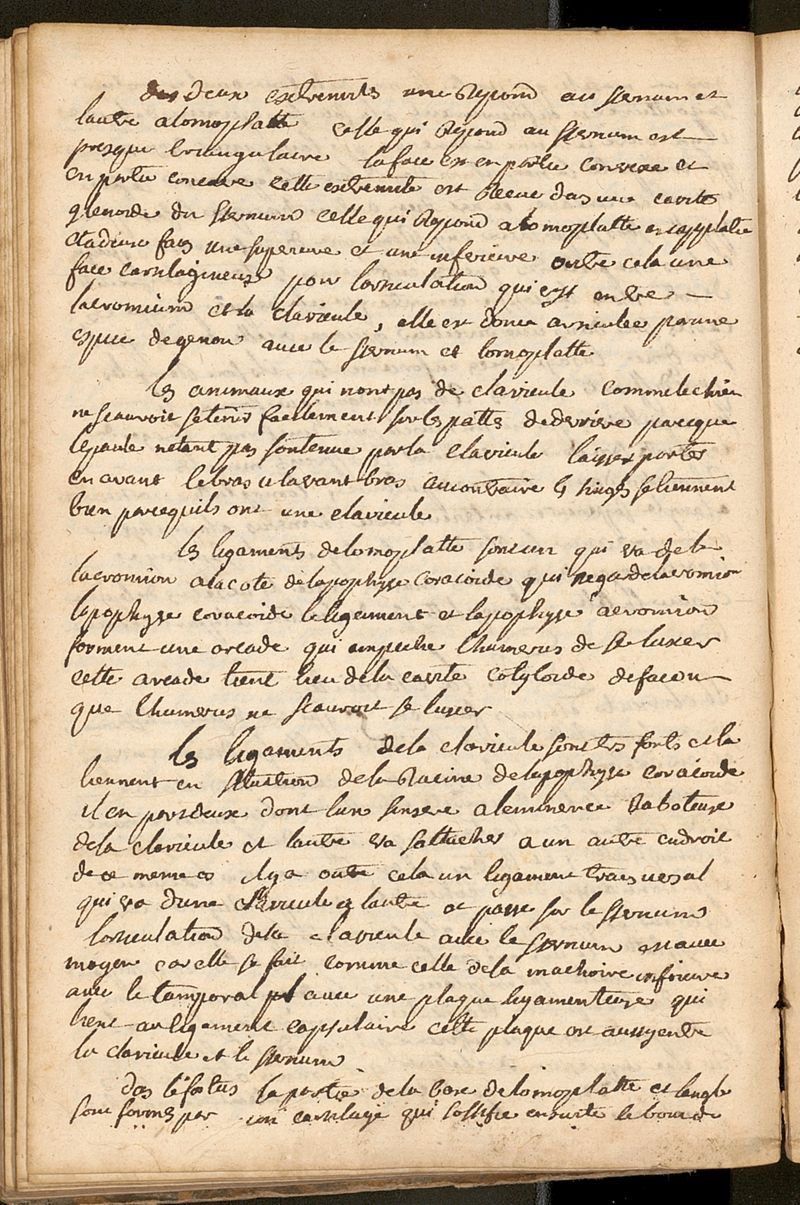 des deux extremités une Repond au sternum et
lautre a lomoplatte celle qui Repond au sternum est
presque triangulaire la face est en partie convexe et
en partie concave cette extremité est Receue das une cavité
glenoide du sternum celle qui Repond a lomoplatte est applatie
et a deux faces une superieure et une inferieure outre cela une
face cartilagineuse pour larticulation qui est entre
lacromium et la clavicule, elle est donc articulée par une
espece de genou avec le sternum et lomoplatte
les animaux qui nont pas de clavicule comme le chien
ne scauroit se tenir facilement sur les pattes de derriere parceque
lepaule netant pas soutenue par la clavicule laisse porter
en avant le bras et lavant bras au contraire les singes se tiennent
bien parcequils ont une clavicule
les ligaments de lomoplatte sont un qui va de la
lacromion a la cote de lapophyse coracoide qui regarde lacromion
lapophyse coracoide le ligament et lapophyse acromion
forment une arcade qui empeche lhumerus de se luxer
cette arcade tient lieu de la cavité cotyloide de facon
que lhumerus ne scauroit se luxer
les ligaments de la clavicule sont tres forts et la
tiennent en situation de la Racine de lapophyse coracoide
il en part deux dont lun sinsere a leminence Raboteuse
de la clavicule et lautre va sattacher a un autre endroit
de ce meme os il y a outre cela un ligament transversal
qui va dune clavicule a lautre et passe sur le sternum
larticulation de la clavicule avec le sternum est avec
moyen car elle se fait comme celle de la machoire inferieure
avec le temporal avec une plaque ligamenteuse qui
tient au ligament capsulaire cette plaque est aussy entre
la clavicule et le sternum
das le fœtus la partie de la base de lomoplatte et langle
sont formés par un cartilage qui sossifie ensuite le bour de